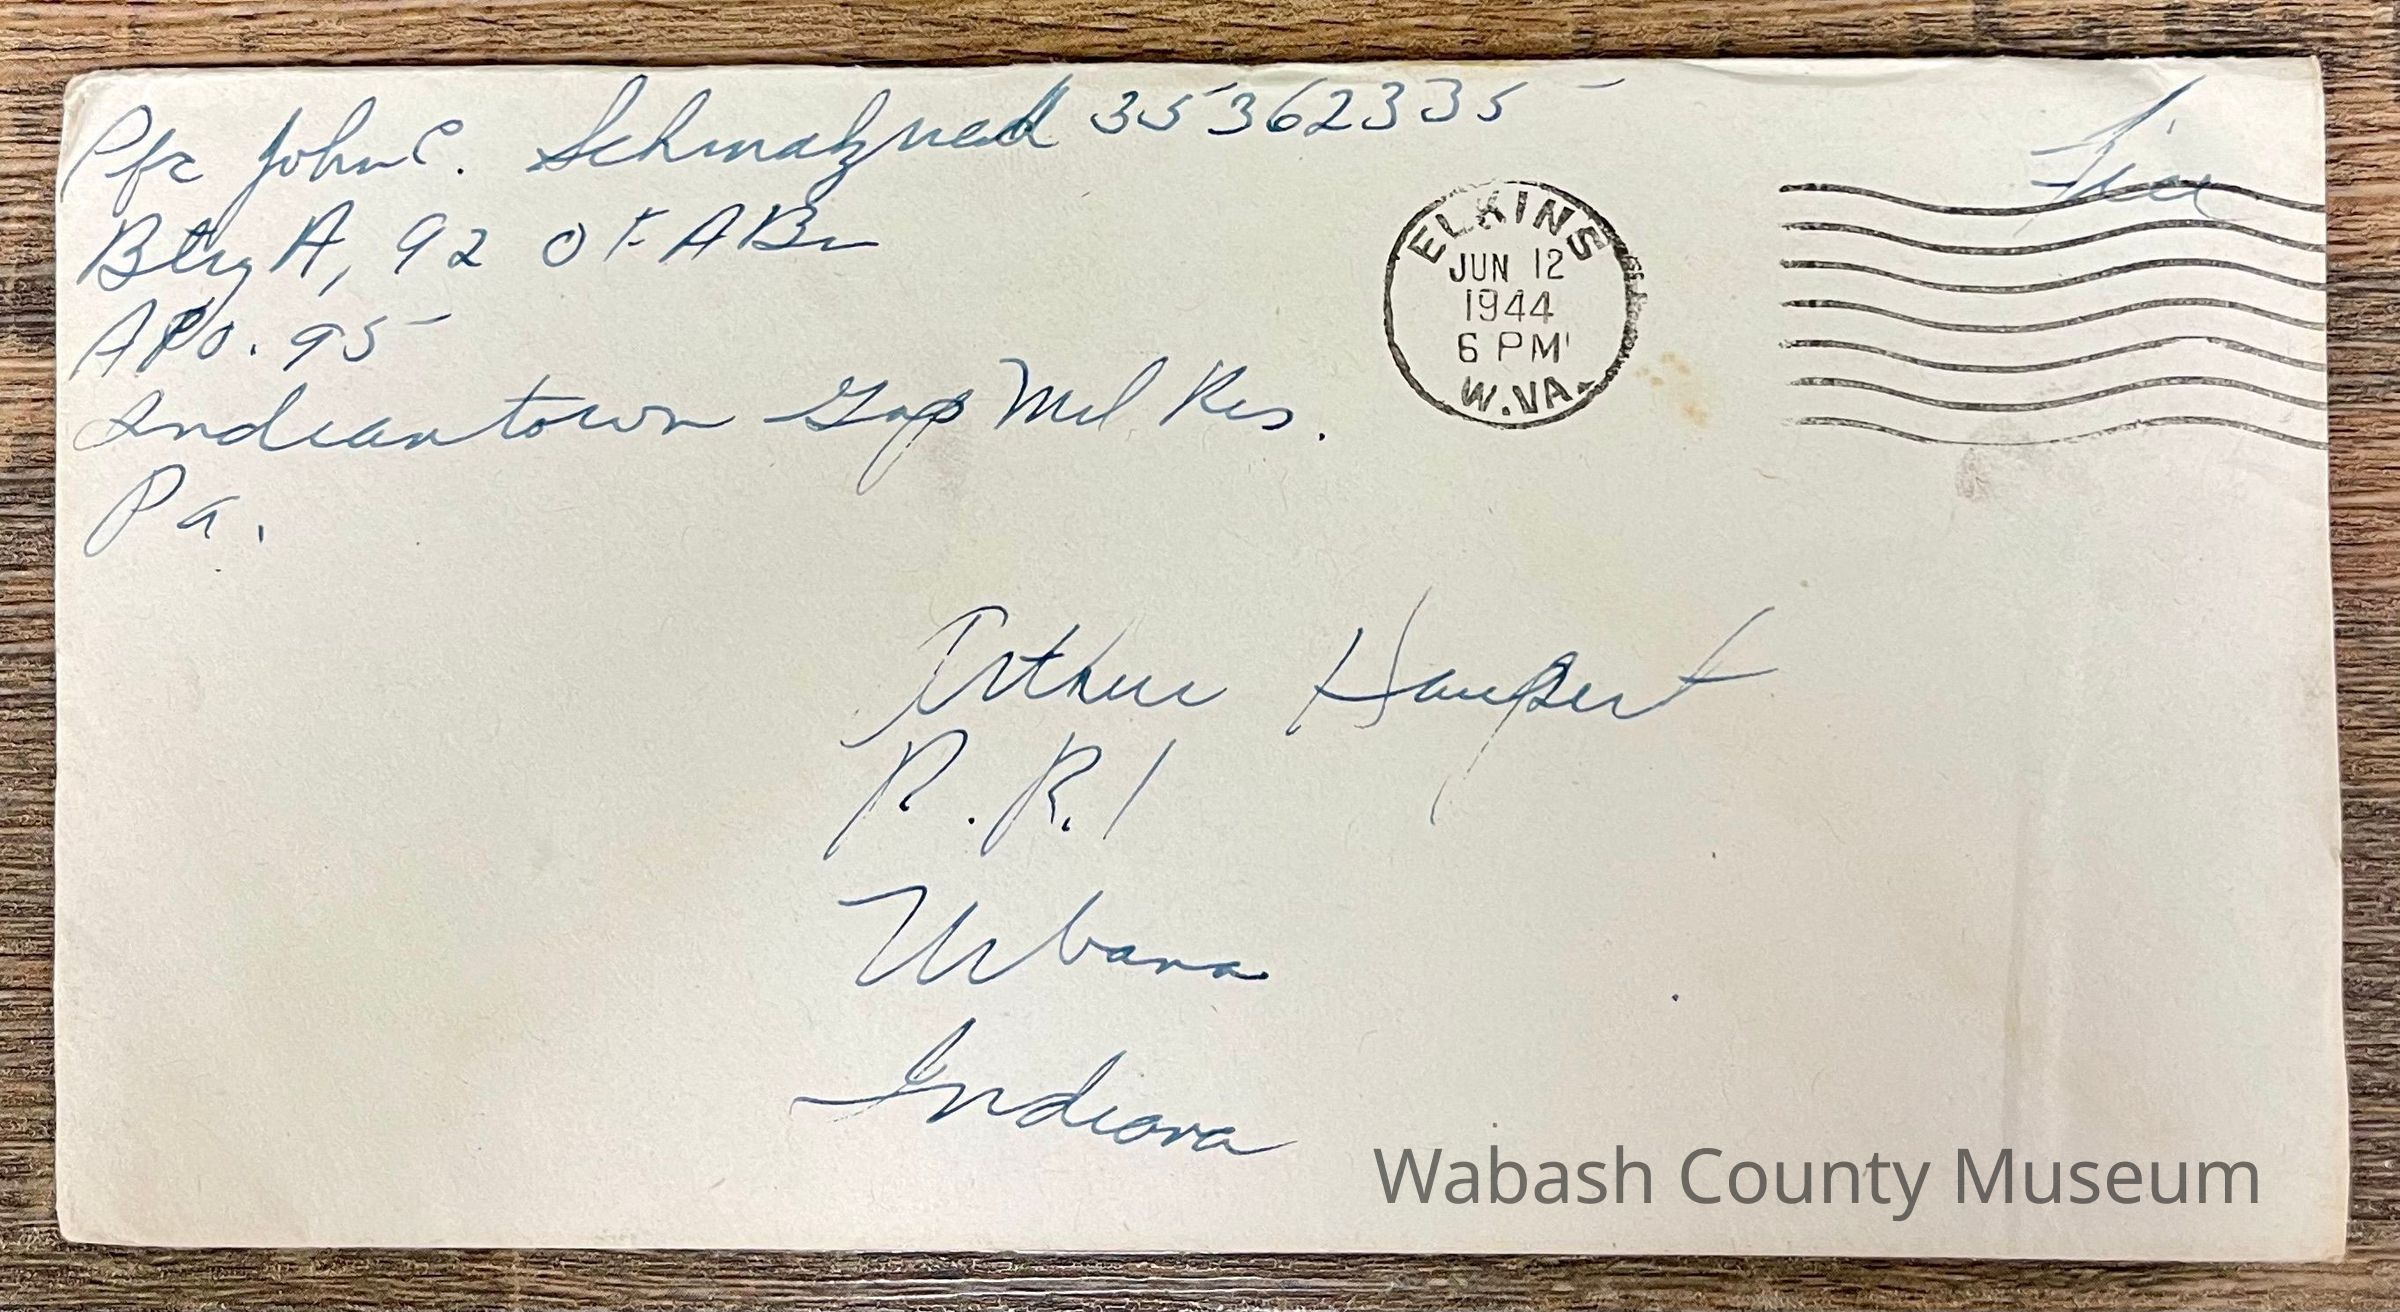 Pfc John C. Schmalzried 35362335
Btry A, 92 d F A Bn
APO. 95
Indiantown Gap Mil Res.
Pa.
Free
ELKINS
JUN 12
1944
6 PM
W.VA.
Arthur Haupert
R.R.1
Urbana
Indiana
Wabash County Museum